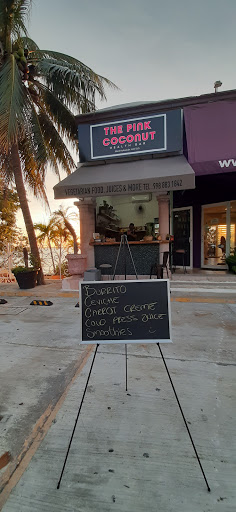 THE PINK
COCONUT
HEALTH BAR
VEGETARIAN FOOD, JUICES & MORE TEL 998 883 1942
WW
BURRITO
CEVICHE
CARROT CREME
COLD PRESS JUICE
SMOOTHIES